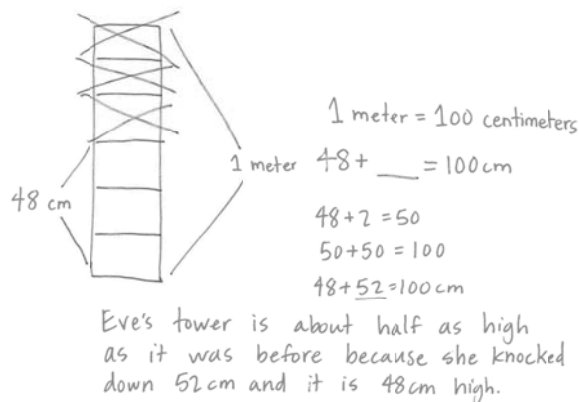 1 meter = 100 centimeters
1 meter
48 + ___ = 100 cm
48 cm
48+2=50
50+50=100
48+52=100cm
Eve's tower is about half as high
as it was before because she knocked
down 52cm and it is 48cm high.